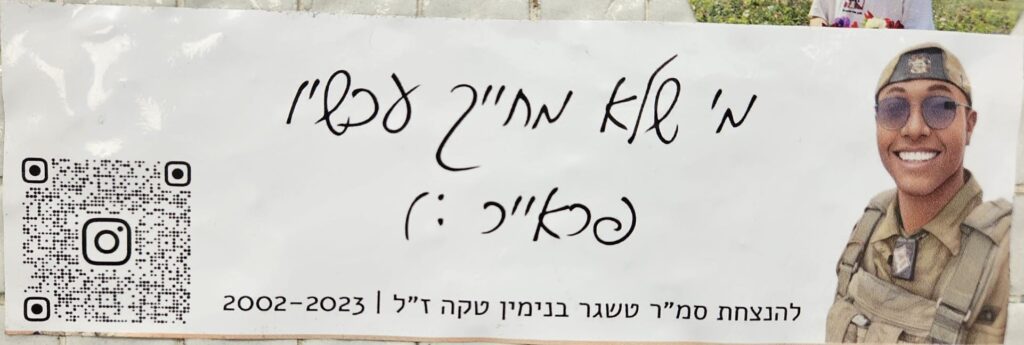 מי שלא מחייך עכשיו
פראייר :)
להנצחת סמ"ר טשגר בנימין טקה ז"ל | 2002-2023